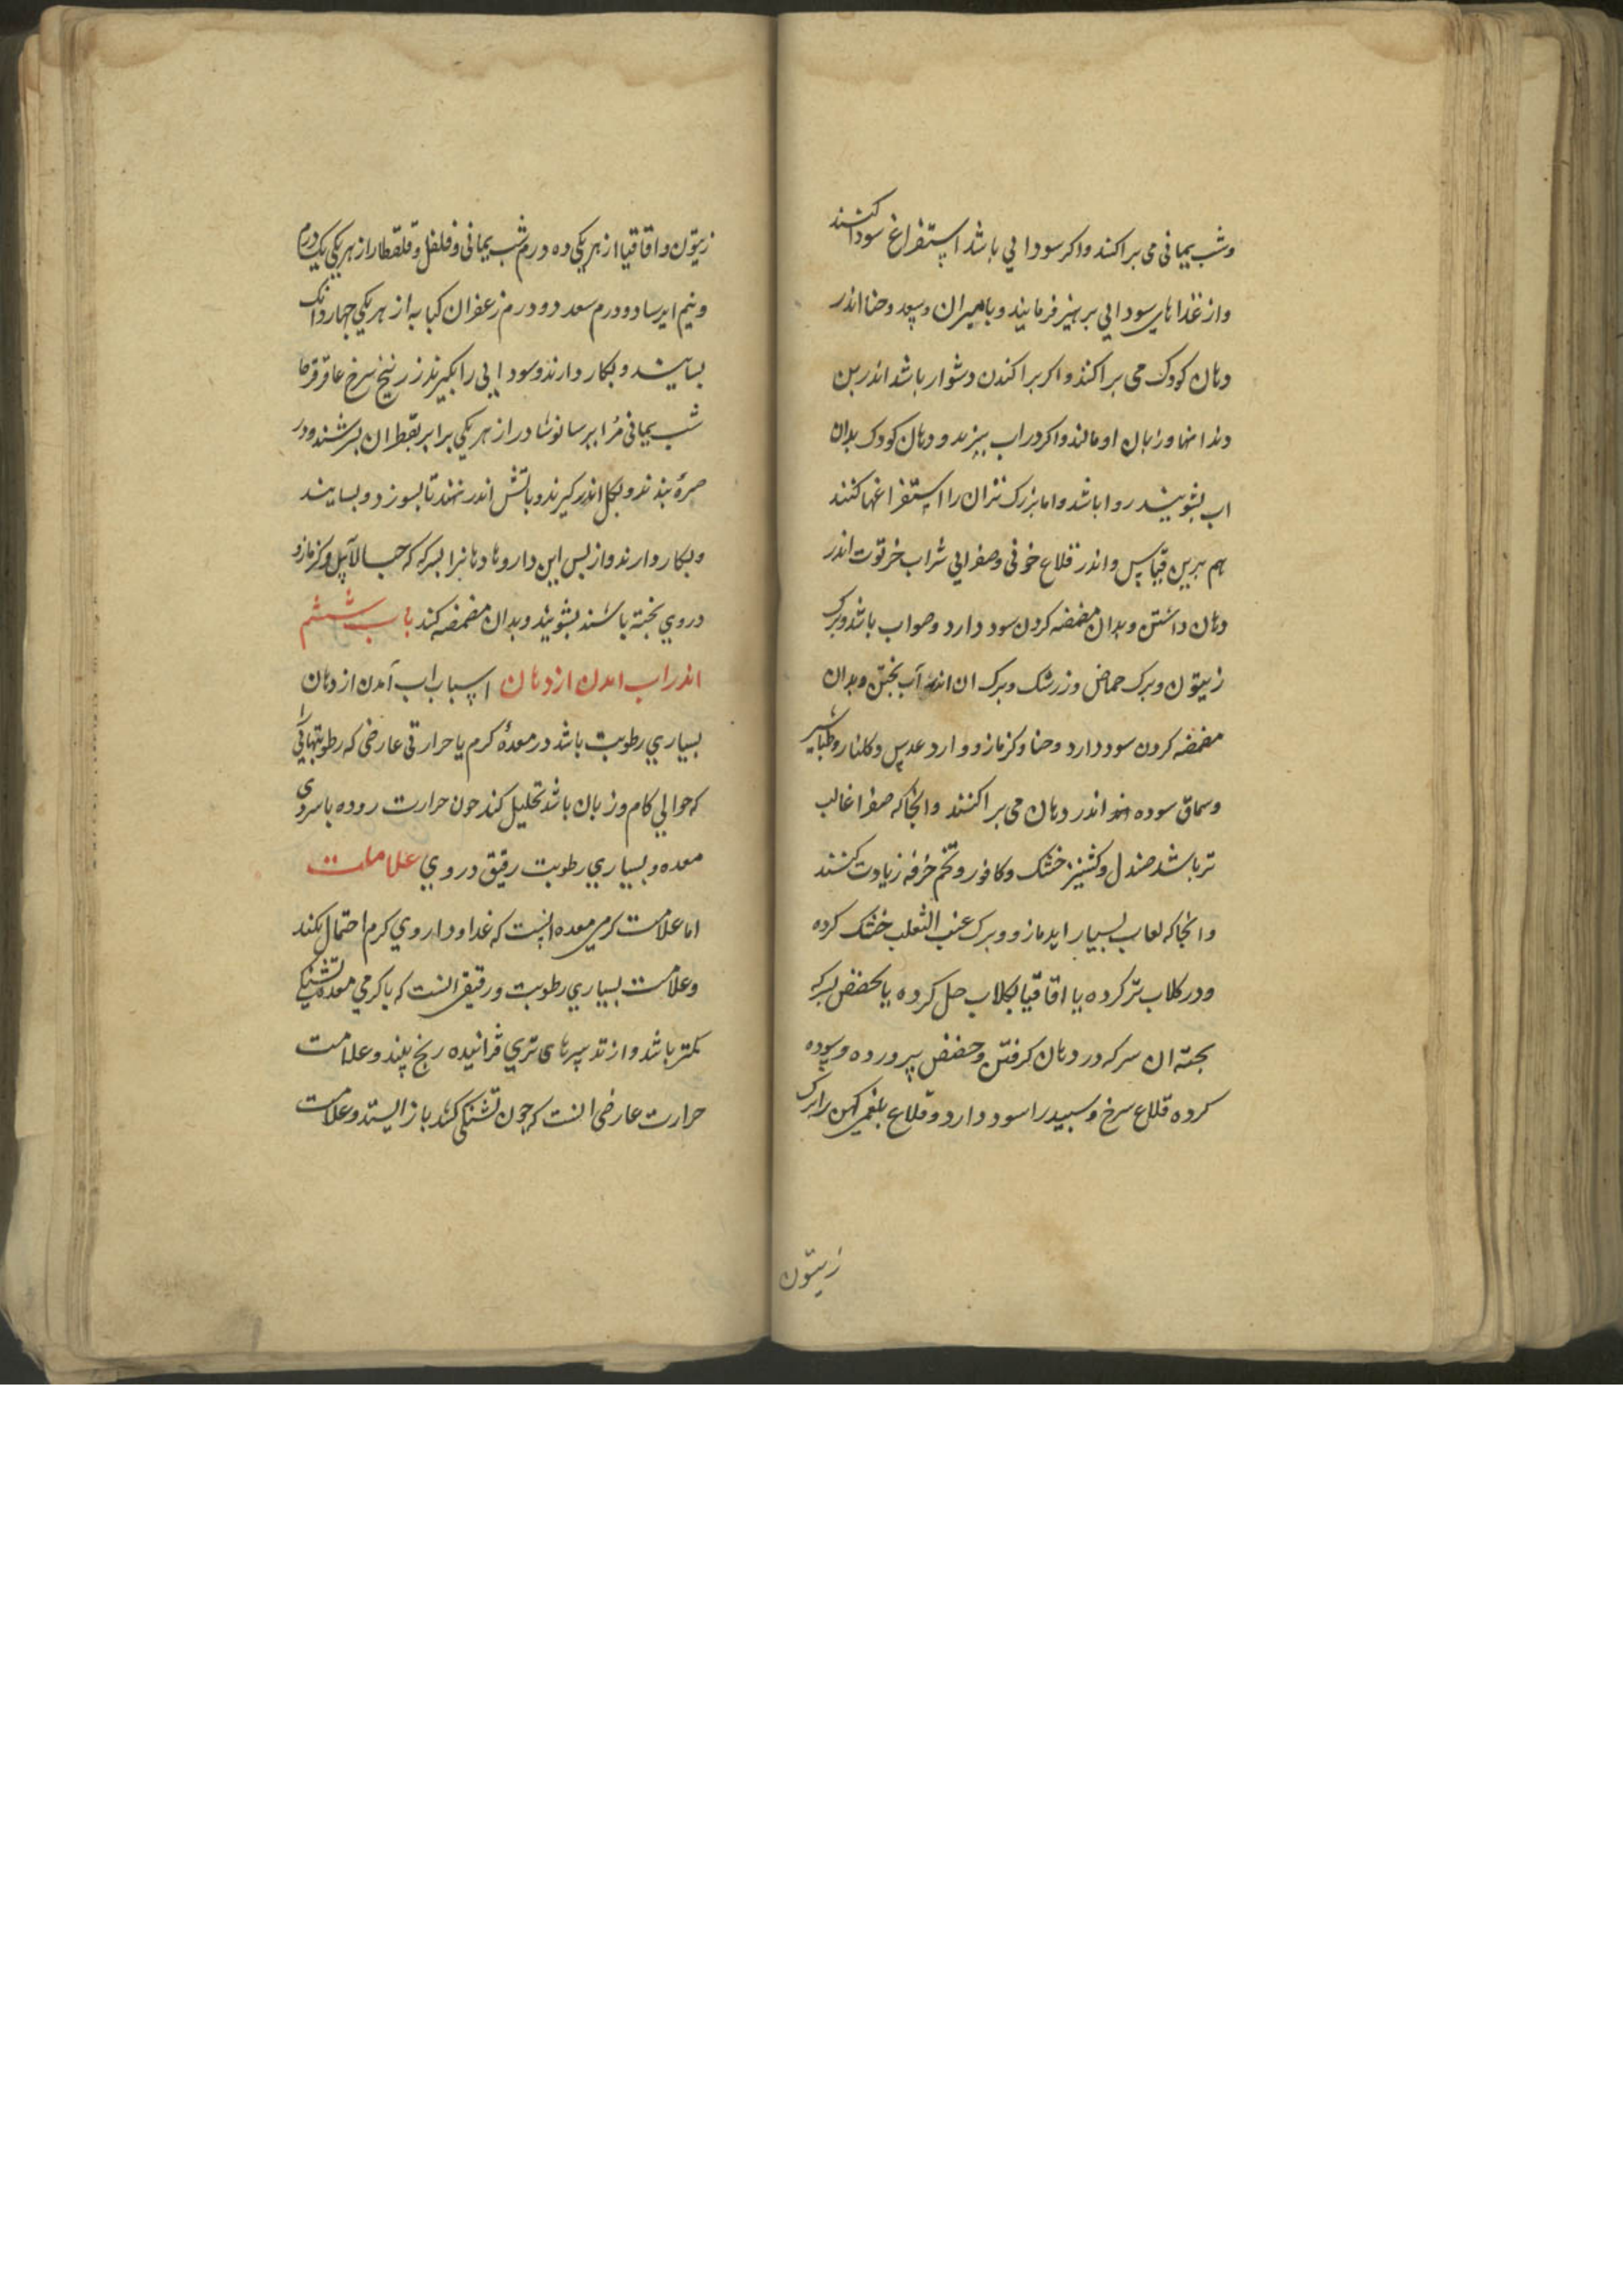 وشب یمانی می براکنند واکر سودایی باشد استفراغ سودا کنند
واز غذاهای سودایی برهیز فرمایند وبامیران وسعد وحنا اندر
دهان کودک می براکنند واکر براکندن دشوار باشد اندر بن
دندانها وزبان او مالند واکر در اب ببزند ودهان کودک بدان
اب بشویند روا باشد واما بزرک تران را استفراغها کنند
هم برین قیاس واندر قلاع خونی وصفرایی شراب خرتوت اندر
دهان داشتن وبدان مضمضه کردن سود دارد وصواب باشد وبرک
زیتون وبرک حماض وزرشک وبرک ان اندر آب بختن وبدان
مضمضه کردن سود دارد وحنا وکزمازو وارد عدس وکلنار وطباشیر
وسماق سوده اندر دهان می براکنند وانجا که صفرا غالب
تر باشد صندل وکشنیز خشک وکافور وتخم خرفه زیادت کنند
وانجا که لعاب بسیار اید مازو وبرک عنب الثعلب خشک کرده
ودر کلاب تر کرده یا اقاقیا بکلاب حل کرده یا حضض بسرکه
بخته ان سرکه در دهان کرفتن وحضض پرورده وسوده
کرده قلاع سرخ وسبید را سود دارد وقلاع بلغمی کهن را برک
زیتون
زیتون واقاقیا از هر یکی ده درم شب یمانی وفلفل وقلقطار از هر یکی یک درم
ونیم ایرسا دو درم سعد دو درم زعفران کبابه از هر یکی چهار دانک
بسایند وبکار دارند وسودایی را بکیرند زرنیخ سرخ عاقرقرحا
شب یمانی مر ایرسا نوشادر از هر یکی برابر بقطران بسرشند ودر
صرهٔ بندند وبکل اندر کیرند وباتش اندر نهند تا بسوزد وبسایند
وبکار دارند واز بس این داروها دهانرا بسرکه که حب الآس وکزمازو
در وی بخته باشند بشویند وبدان مضمضه کند باب ششم
اندر اب امدن از دهان اسباب اب آمدن از دهان
بسیاری رطوبت باشد در معدهٔ کرم یا حرارتی عارضی که رطوبتهائی را
که حوالی کام وزبان باشد تحلیل کند چون حرارت روده با سردی
معده وبسیاری رطوبت رقیق در وی علامات
اما علامت کرمی معده انست که غذا وداروی کرم احتمال نکند
وعلامت بسیاری رطوبت ورقیقی انست که با کرمی معده تشنکی
کمتر باشد واز تدبیرهای تری فزاینده رنج بیند وعلامت
حرارت عارضی انست که چون تشنکی کند باز ایستد وعلامت